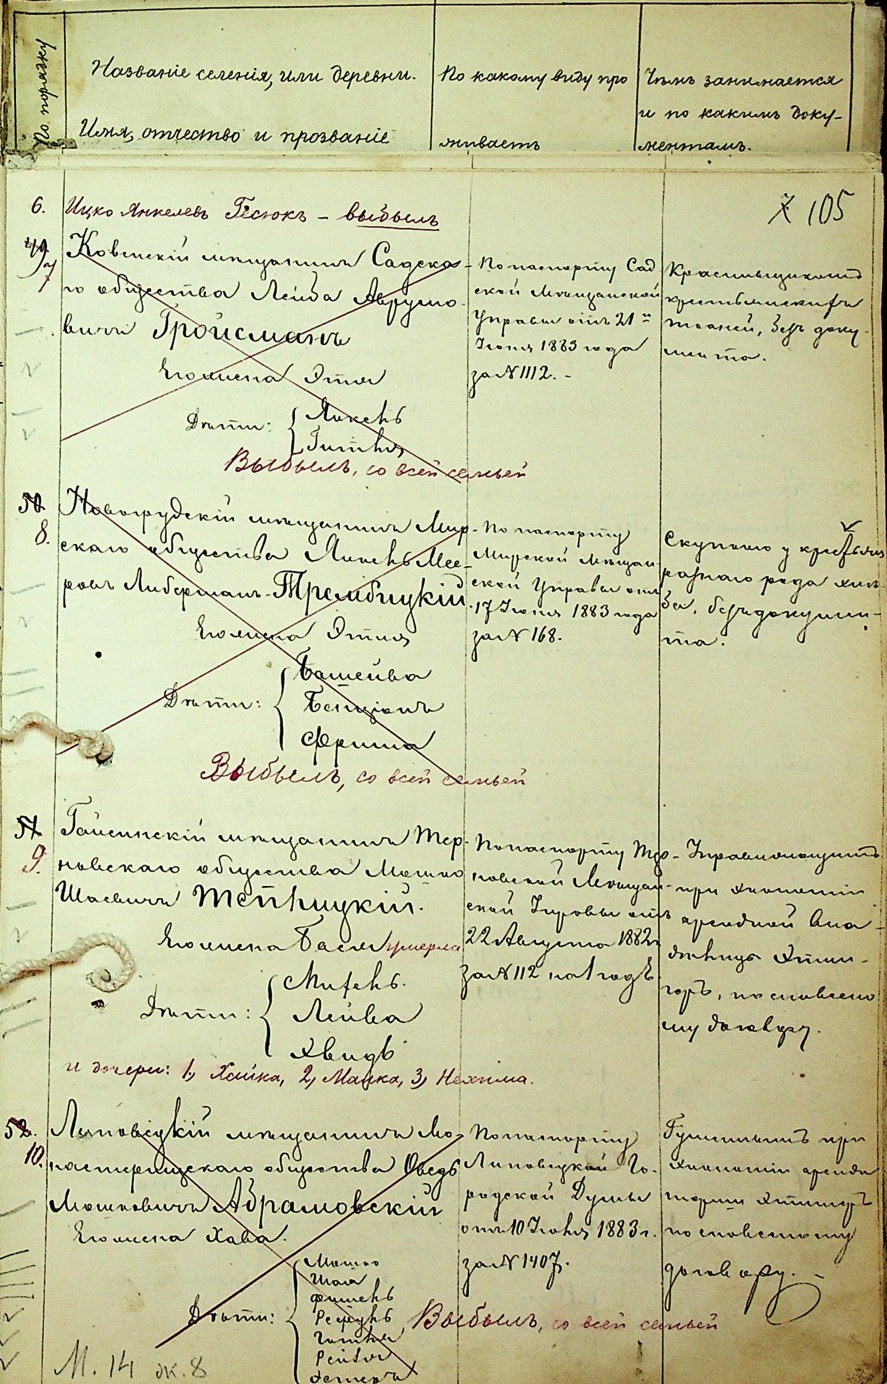 По порядку
Названіе селенія, или деревни.
Имя, отчество и прозваніе
По какому виду про
живаетъ
Чѣмъ занимается
и по какимъ доку-
ментамъ.
105
6. Ицко Янкелевъ Гесюкъ - выбылъ
49 7 Ковенскій мѣщанинъ Садска-
го общества Лейба Аврумо-
вичъ Гройсманъ
Его жена Этля
Дѣти:
Янкель
Гитля
Выбылъ, со всей семьей
По паспорту Сад
ской Мѣщанской
Управы отъ 21го
Іюня 1883 года
за № 1112. -
Красильщикомъ
крестьянскихъ
тканей, безъ доку-
мента.
50 8. Новогрудскій мѣщанинъ Мир-
скаго общества Янкель Мее-
ровъ Либерманъ-Трембицкій
Его жена Этля
Дѣти:
Башейва
Бенціонъ
Фрима
Выбылъ, со всей семьей
По паспорту
Мирской Мѣщан
ской Управы отъ
17 Іюня 1883 года
за № 168.
Скупкою у крестьянъ
разнаго рода хлѣ-
ба, безъ докумен-
та.
51 9. Гайсинскій мѣщанинъ Тер-
новскаго общества Мошко
Шаевичъ
Его жена Бася умерла
Дѣти:
Лейва
Хвидь
и дочери: 1, Хайка, 2, Манка, 3, Нехима.
По паспорту Тер-
новской Мѣщан-
ской Управы отъ
22 Августа 1882 г.
за № 112 на 1 годъ.
Управляющимъ
при
арендной
по словесно
му договору.
52. 10. Липовецкій мѣщанинъ Мо-
настерищскаго общества Оведь
Мошковичъ Абрамовскій
Его жена Хава.
Дѣти:
Мошко
Шая
Фишель
Гитля
Рейзя
Выбылъ, со всей семьей
По паспорту
Липовецкой Го-
родской Думы
отъ 10 Іюня 1883 г.
за № 1407.
при
аренды
по словесному
договору. -
М. 14 эк. 8